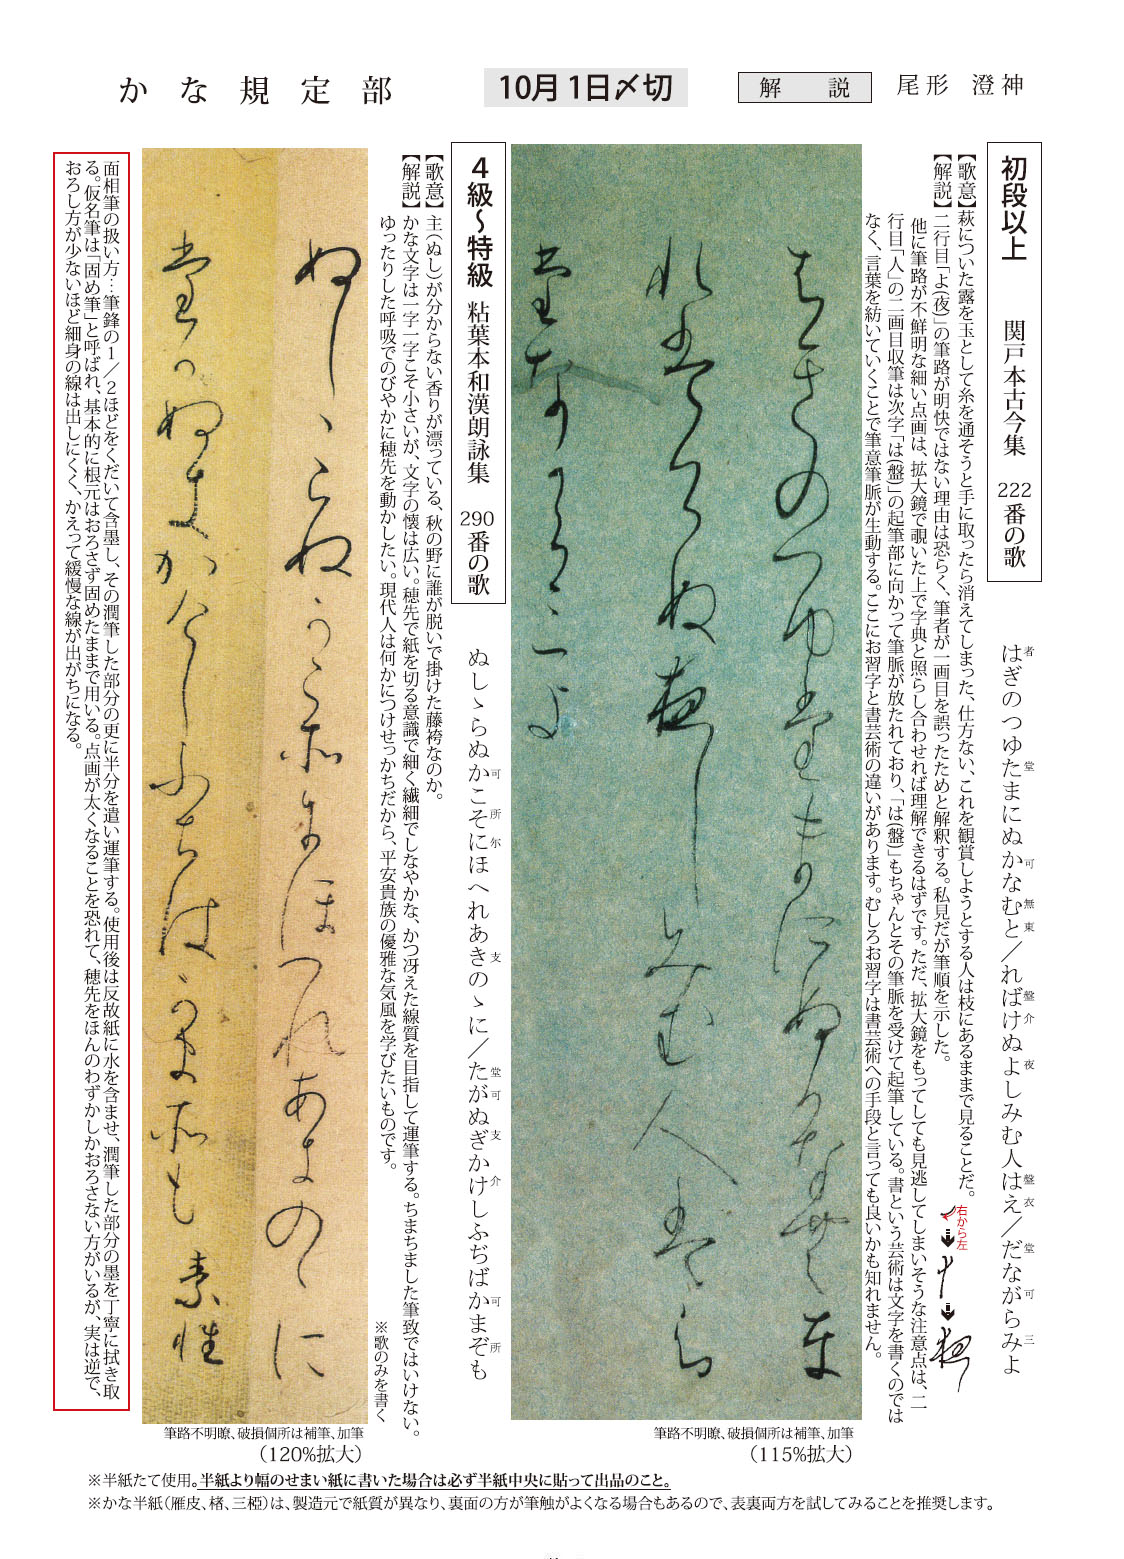 かな規定部
10月1日〆切
解説
尾形 澄神
初段以上 関戸本古今集 222番の歌
はぎのつゆたまにぬかなむと／ればけぬよしみむ人はえ／だながらみよ
者 堂 可 無 東 盤 介 夜 盤 衣 堂 可 三
【歌意】萩についた露を玉として糸を通そうと手に取ったら消えてしまった、仕方ない、これを観賞しようとする人は枝にあるままで見ることだ。
【解説】二行目「よ(夜)」の筆路が明快ではない理由は恐らく、筆者が一画目を誤ったためと解釈する。私見だが筆順を示した。
他に筆路が不鮮明な細い点画は、拡大鏡で覗いた上で字典と照らし合わせれば理解できるはずです。ただ、拡大鏡をもってしても見逃してしまいそうな注意点は、二
行目「人」の二画目収筆は次字「は(盤)」の起筆部に向かって筆脈が放たれており、「は(盤)」もちゃんとその筆脈を受けて起筆している。書という芸術は文字を書くのでは
なく、言葉を紡いでいくことで筆意筆脈が生動する。ここにお習字と書芸術の違いがあります。むしろお習字は書芸術への手段と言っても良いかも知れません。
右から左
筆路不明瞭、破損個所は補筆、加筆
（115%拡大）
4級〜特級 粘葉本和漢朗詠集 290番の歌
ぬしゝらぬかこそにほへれあきのゝに／たがぬぎかけしふぢばかまぞも
可 所 尓 支 堂 可 支 介 可 所
【歌意】主(ぬし)が分からない香りが漂っている、秋の野に誰が脱いで掛けた藤袴なのか。
【解説】かな文字は一字一字こそ小さいが、文字の懐は広い。穂先で紙を切る意識で細く繊細でしなやかな、かつ冴えた線質を目指して運筆する。ちまちました筆致ではいけない。
ゆったりした呼吸でのびやかに穂先を動かしたい。現代人は何かにつけせっかちだから、平安貴族の優雅な気風を学びたいものです。
※歌のみを書く
素性
筆路不明瞭、破損個所は補筆、加筆
（120%拡大）
面相筆の扱い方…筆鋒の1／2ほどをくだいて含墨し、その潤筆した部分の更に半分を遣い運筆する。使用後は反故紙に水を含ませ、潤筆した部分の墨を丁寧に拭き取
る。仮名筆は「固め筆」と呼ばれ、基本的に根元はおろさず固めたままで用いる。点画が太くなることを恐れて、穂先をほんのわずかしかおろさない方がいるが、実は逆で、
おろし方が少ないほど細身の線は出しにくく、かえって緩慢な線が出がちになる。
※半紙たて使用。半紙より幅のせまい紙に書いた場合は必ず半紙中央に貼って出品のこと。
※かな半紙（雁皮、楮、三椏）は、製造元で紙質が異なり、裏面の方が筆触がよくなる場合もあるので、表裏両方を試してみることを推奨します。